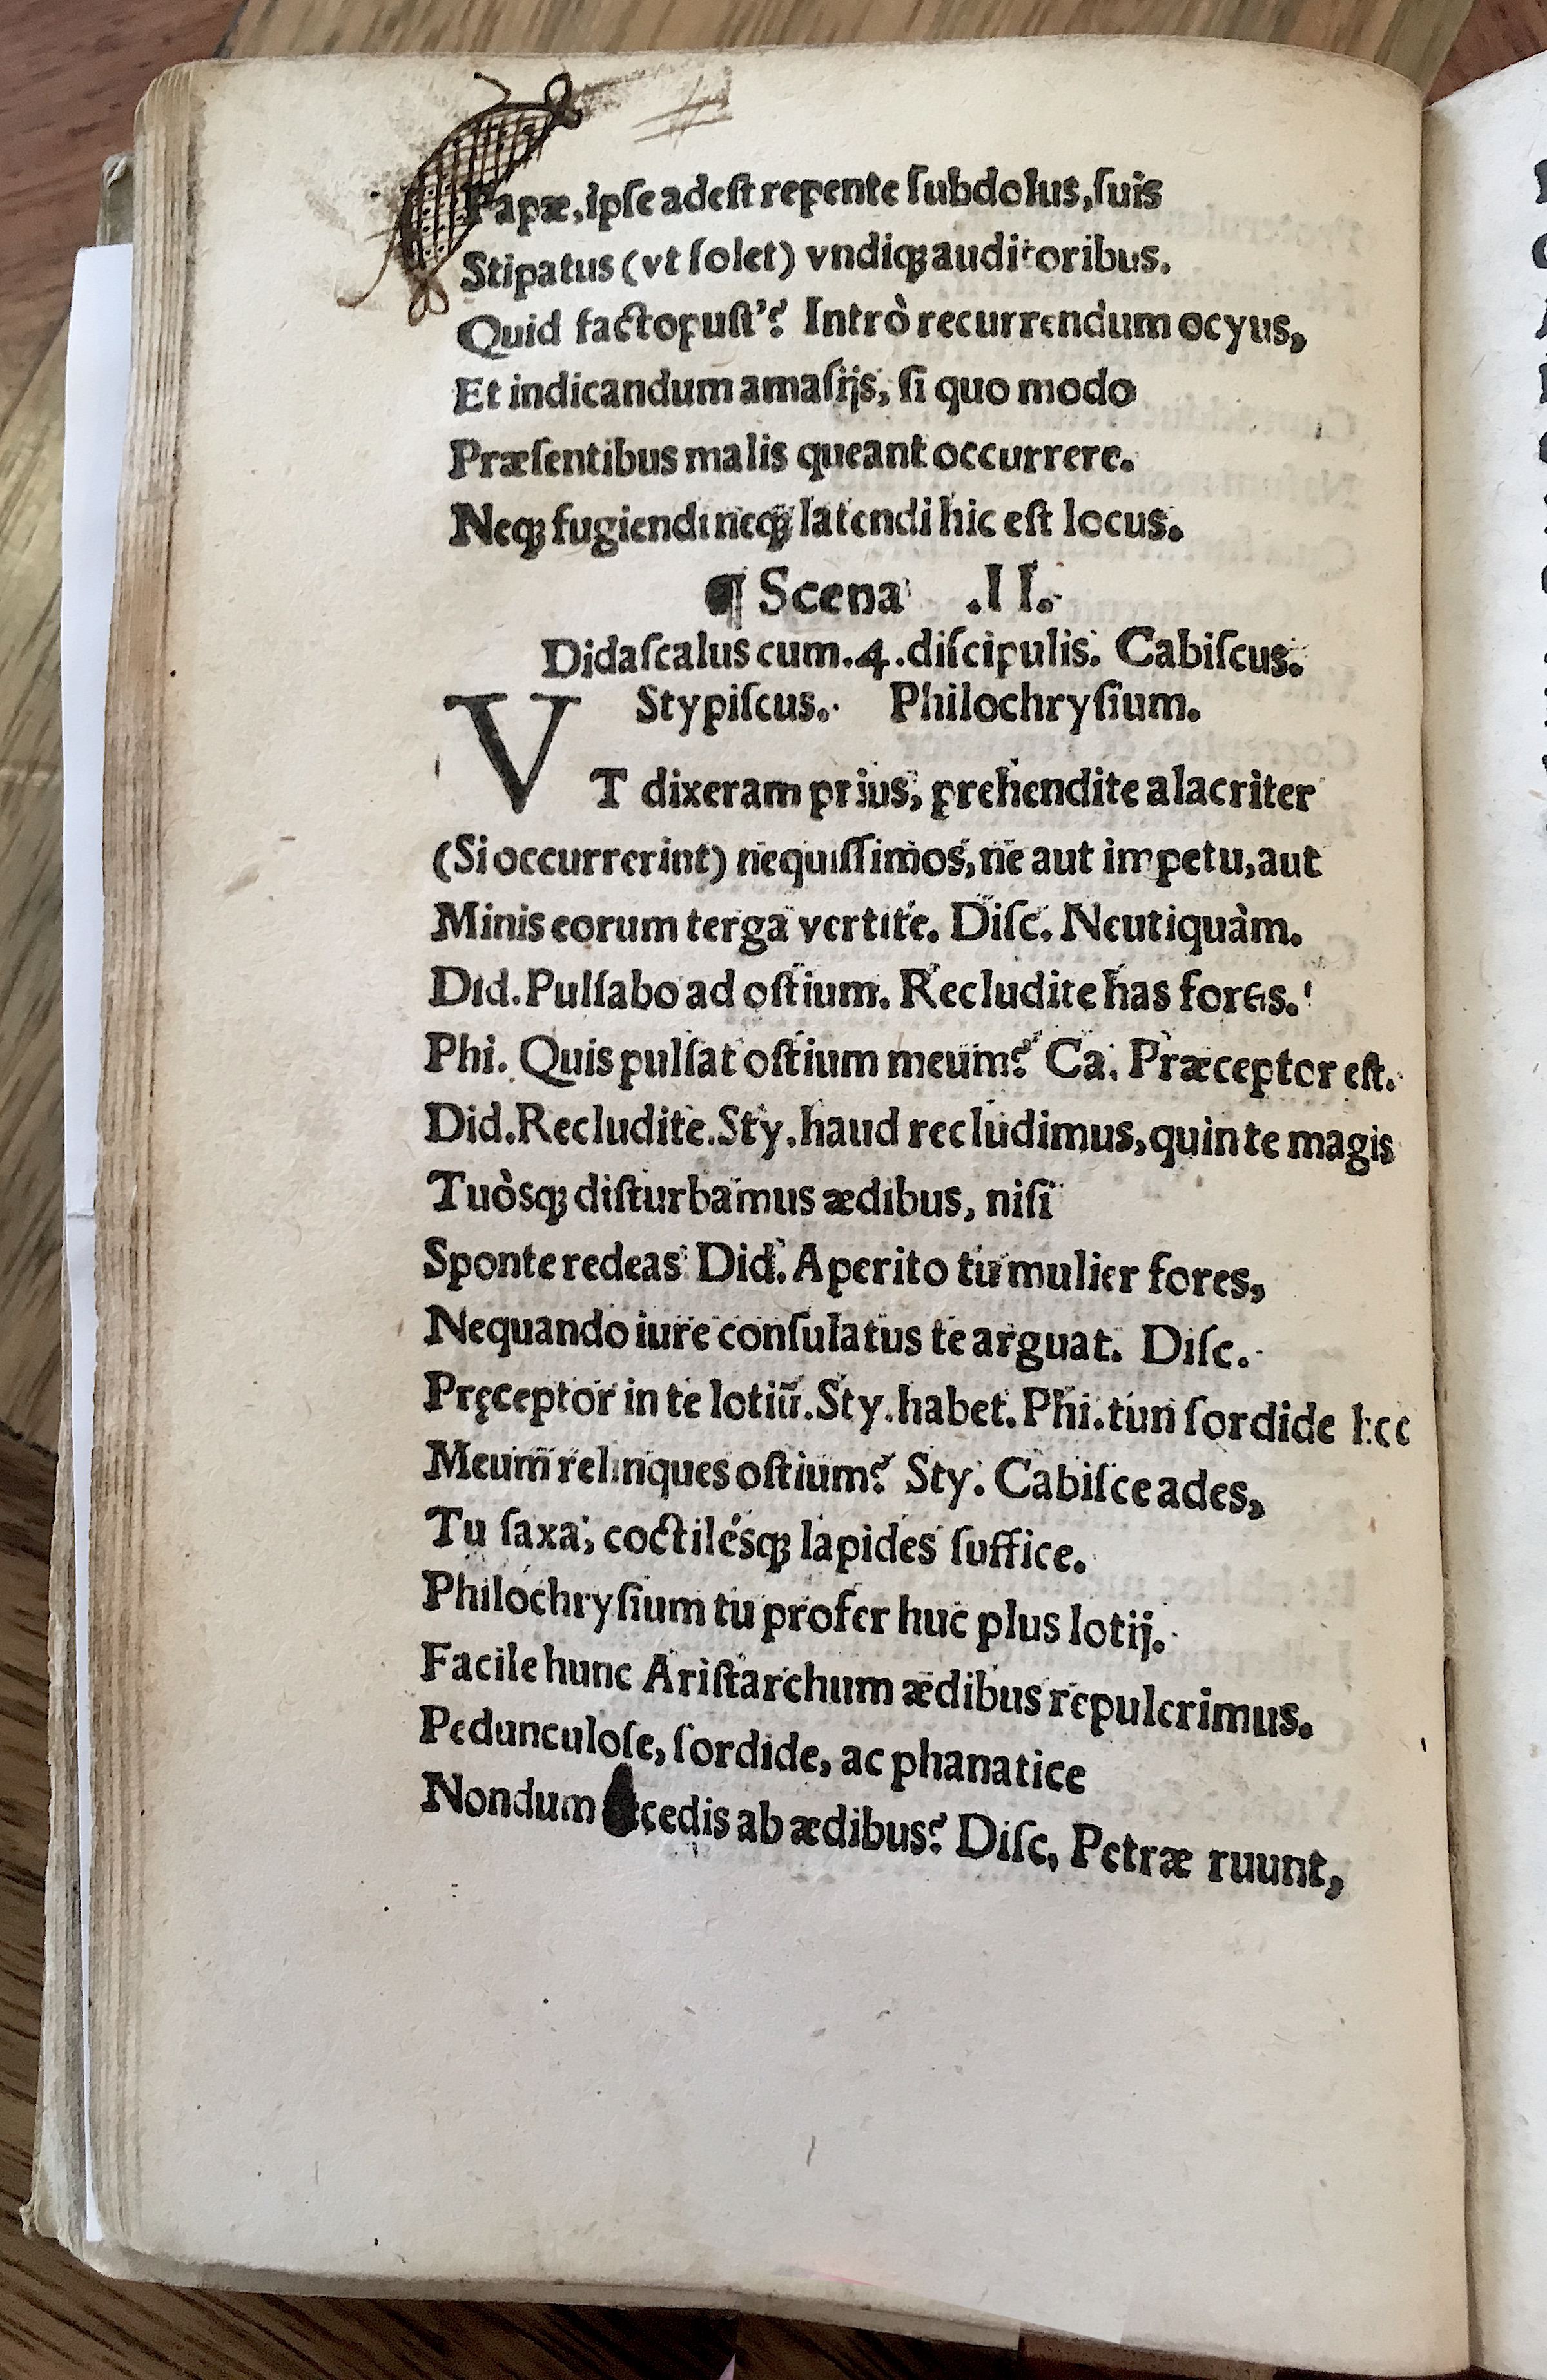 Papæ, ipſe adeſt repente ſubdolus, ſuis
Stipatus (vt ſolet) vndiq; auditoribus.
Quid factopuſt'? Intrò recurrendum ocyus,
Et indicandum amaſijs, ſi quo modo
Præſentibus malis queant occurrere.
Neq; fugiendi neq; latendi hic eſt locus.
¶ Scena .II.
Didaſcalus cum .4. diſcipulis. Cabiſcus.
Stypiſcus. Philochryſium.
VT dixeram prius, prehendite alacriter
(Si occurrerint) nequiſſimos, ne aut impetu, aut
Minis eorum terga vertite. Diſc. Neutiquàm.
Did. Pulſabo ad oſtium. Recludite has fores.
Phi. Quis pulſat oſtium meum? Ca. Præceptor eſt.
Did. Recludite. Sty. haud recludimus, quin te magis
Tuòsq; diſturbamus ædibus, niſi
Sponte redeas. Did. Aperito tu mulier fores,
Nequando iure conſulatus te arguat. Diſc.
Pręceptor in te lotiū. Sty. habet. Phi. tun ſordide
Meum relinques oſtium? Sty. Cabiſce ades,
Tu ſaxa, coctilésq; lapides ſuffice.
Philochryſium tu profer huc plus lotij.
Facile hunc Ariſtarchum ædibus repulerimus.
Pedunculoſe, ſordide, ac phanatice
Nondum ab ædibus? Diſc. Petræ ruunt,